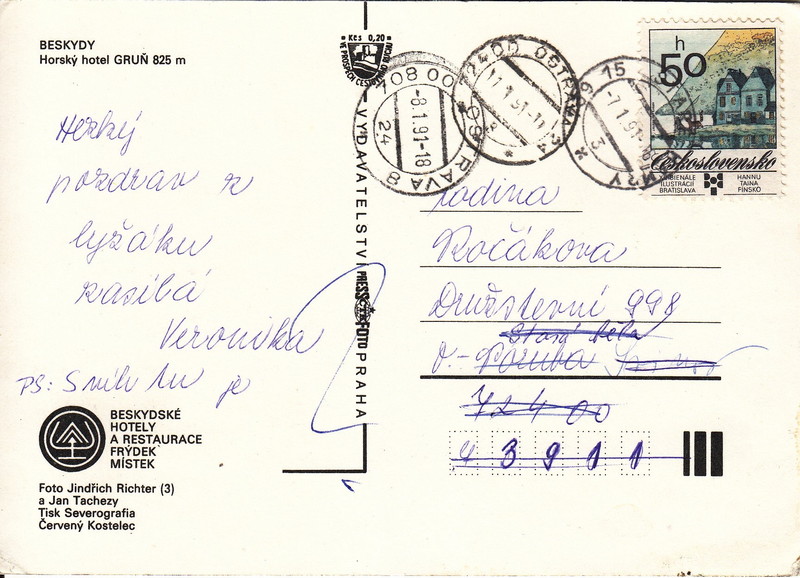 BESKYDY
Horský hotel GRUŇ 825 m
Hezký
pozdrav z
lyžáku
zasílá
Veronika
PS: Sníh tu je
BESKYDSKÉ
HOTELY
A RESTAURACE
FRÝDEK
MÍSTEK
Foto Jindřich Richter (3)
a Jan Tachezy
Tisk Severografia
Červený Kostelec
Kčs 0,20
VE PROSPĚCH ČESKÉHO FONDU
VYDAVATELSTVÍ PRESSFOTO PRAHA
OSTRAVA 8
-8.1.91-18
24
724 00 OSTRAVA 24
-7.1.91
3
h
50
Československo
BIENÁLE
ILUSTRÁCIÍ
BRATISLAVA
HANNU
TAINA
FÍNSKO
rodina
Kočákova
Družstevní 998
Stará bělá
o.-Poruba
724 00
43911